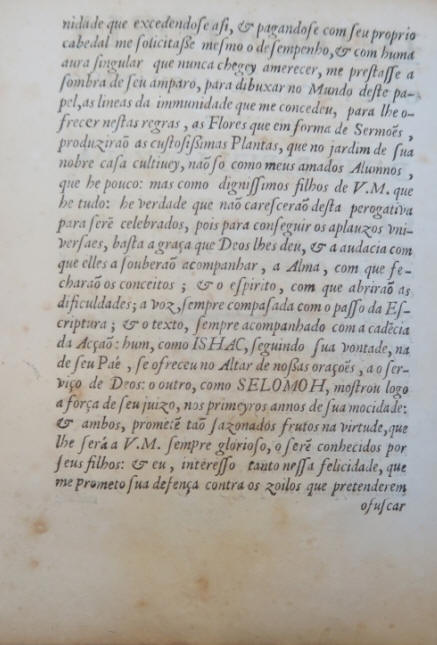 nidade que excedendoſe aſi, & pagandoſe com ſeu proprio
cabedal me ſolicitaße meſmo o deſempenho, & com huma
aura ſingular que nunca chegey amerecer, me preſtaſſe a
ſombra de ſeu amparo, para dibuxar no Mundo deſte pa-
pel, as lineas da immunidade que me concedeu, para lhe o-
frecer neſtas regras, as Flores que em forma de Sermoẽs,
produziraõ as cuſtoſißimas Plantas, que no jardim de ſua
nobre caſa cultivey, naõ ſo como meus amados Alumnos,
que he pouco: mas como digniſſimos filhos de V.M. que
he tudo: he verdade que naõ careſceraõ deſta perogativa
para ſerẽ celebrados, pois para conſeguir os aplauzos vni-
verſaes, baſta a graça que Deos lhes deu, & a audacia com
que elles a ſouberaõ acompanhar, a Alma, com que fe-
charaõ os conceitos; & o eſpirito, com que abriraõ as
dificuldades; a voz, ſempre compaſada com o paſſo da Eſ-
criptura; & o texto, ſempre acompanhado com a cadẽcia
da Acçaõ: hum, como ISHAC, ſeguindo ſua vontade, na
de ſeu Paé, ſe ofreceu no Altar de noßas oraçoẽs, a o ſer-
viço de Deos: o outro, como SELOMOH, moſtrou logo
a força de ſeu juizo, nos primeyros annos de ſua mocidade:
& ambos, prometẽ taõ ſazonados frutos na virtude, que
lhe ſerá a V.M. ſempre glorioſo, o ſerẽ conhecidos por
ſeus filhos: & eu, intereſſo tanto neſſa felicidade, que
me prometo ſua defença contra os zoilos que pretenderem
ofuſcar